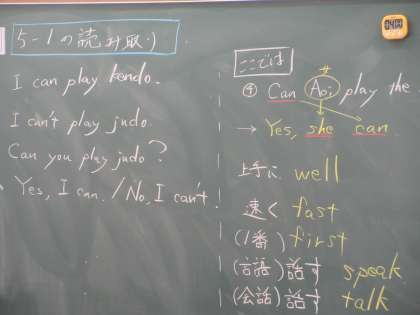 5-1の読み取り
I can play kendo.
I can't play judo.
Can you play judo?
Yes, I can. / No, I can't.
ここでは
サ
④ Can Aoi play the
→ Yes, she can.
上手に well
速く fast
(1番) first
(言語) 話す speak
(会話) 話す talk